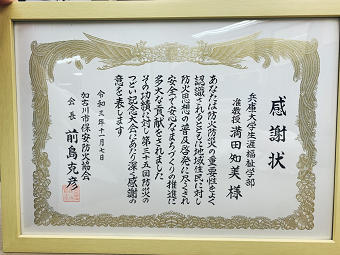 感謝状
兵庫大学生涯福祉学部
准教授 満田知美 様
あなたは防火防災の重要性をよく
認識されるとともに地域住民に対し
防火思想の普及啓発に尽くされ
安全で安心なまちづくりの推進に
多大な貢献をされました
その功績に対し第三十五回防災の
つどい記念大会にあたり深く感謝の
意を表します
令和三年十一月七日
加古川市保安防火協会
会長 前島克彦